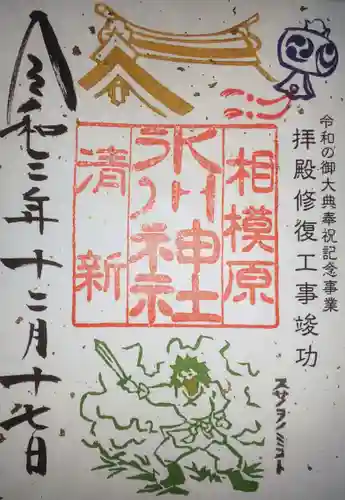 令和の御大典奉祝記念事業
拝殿修復工事竣功
相模原
氷川神社
清新
スサヲノミコト
令和三年十二月十七日